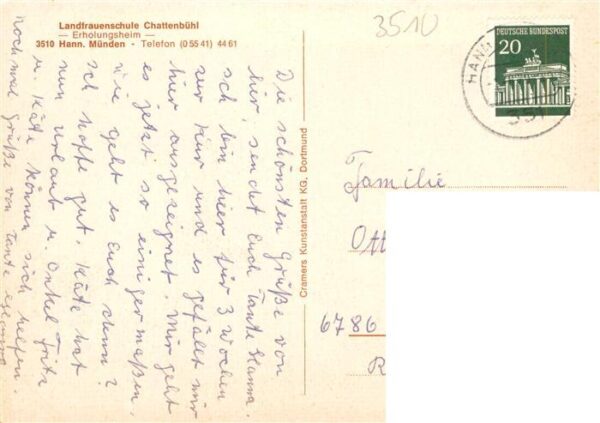 Landfrauenschule Chattenbühl
— Erholungsheim —
3510 Hann. Münden - Telefon (0 55 41) 44 61
3510
DEUTSCHE BUNDESPOST
20
HANN
351
Die schönsten Grüße von
hier, sendet Euch Tante Hanna.
Ich bin hier für 3 Wochen
zur Kur und es gefällt mir
hier ausgezeignet. Mir geht
es jetzt so einigermaßen,
wie geht es Euch denn?
Ich hoffe gut, Käte hat
nun Urlaut u. Onkel Fritz
u. Käte können sich helfen.
nochmal Grüße von Tante
Cramers Kunstanstalt KG. Dortmund
Familie
Ott
6786
R